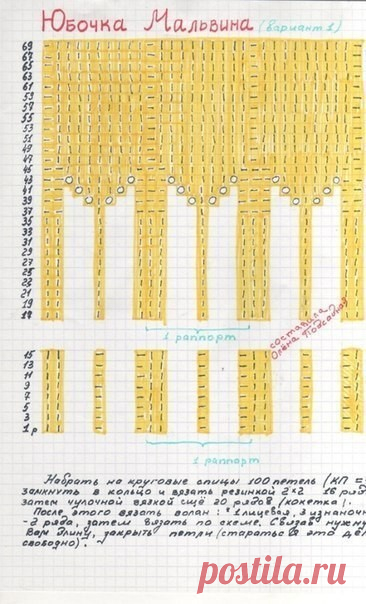 Юбочка Мальвина (вариант 1)
69
67
65
63
61
59
57
55
53
51
49
47
45
43
41
39
37
35
33
31
29
27
25
22
21
19
17
1 раппорт
составила
Орёна Подсадная
15
13
11
9
7
5
3
1 р
1 раппорт
Набрать на круговые спицы 100 петель (КП =
замкнуть в кольцо и вязать резинкой 2*2 16 ряд
затем чулочной вязкой ещё 20 рядов (кокетка).
После этого вязать волан: *1 лицевая, 3 изнаночн
- 2 ряда, затем вязать по схеме. Связав нужну
Вам длину, закрыть петли (старатьс я это дел
свободно).
postila.ru